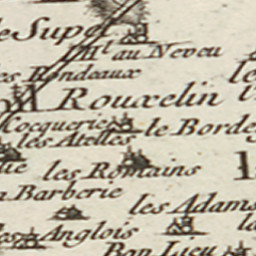 le Supot
M.t au Neveu
les Rondeaux
Rouxelin
Cocquerie
le Borde
les Atelles
les Romains
Barberie
les Adams
les Anglois
Bon Lieu